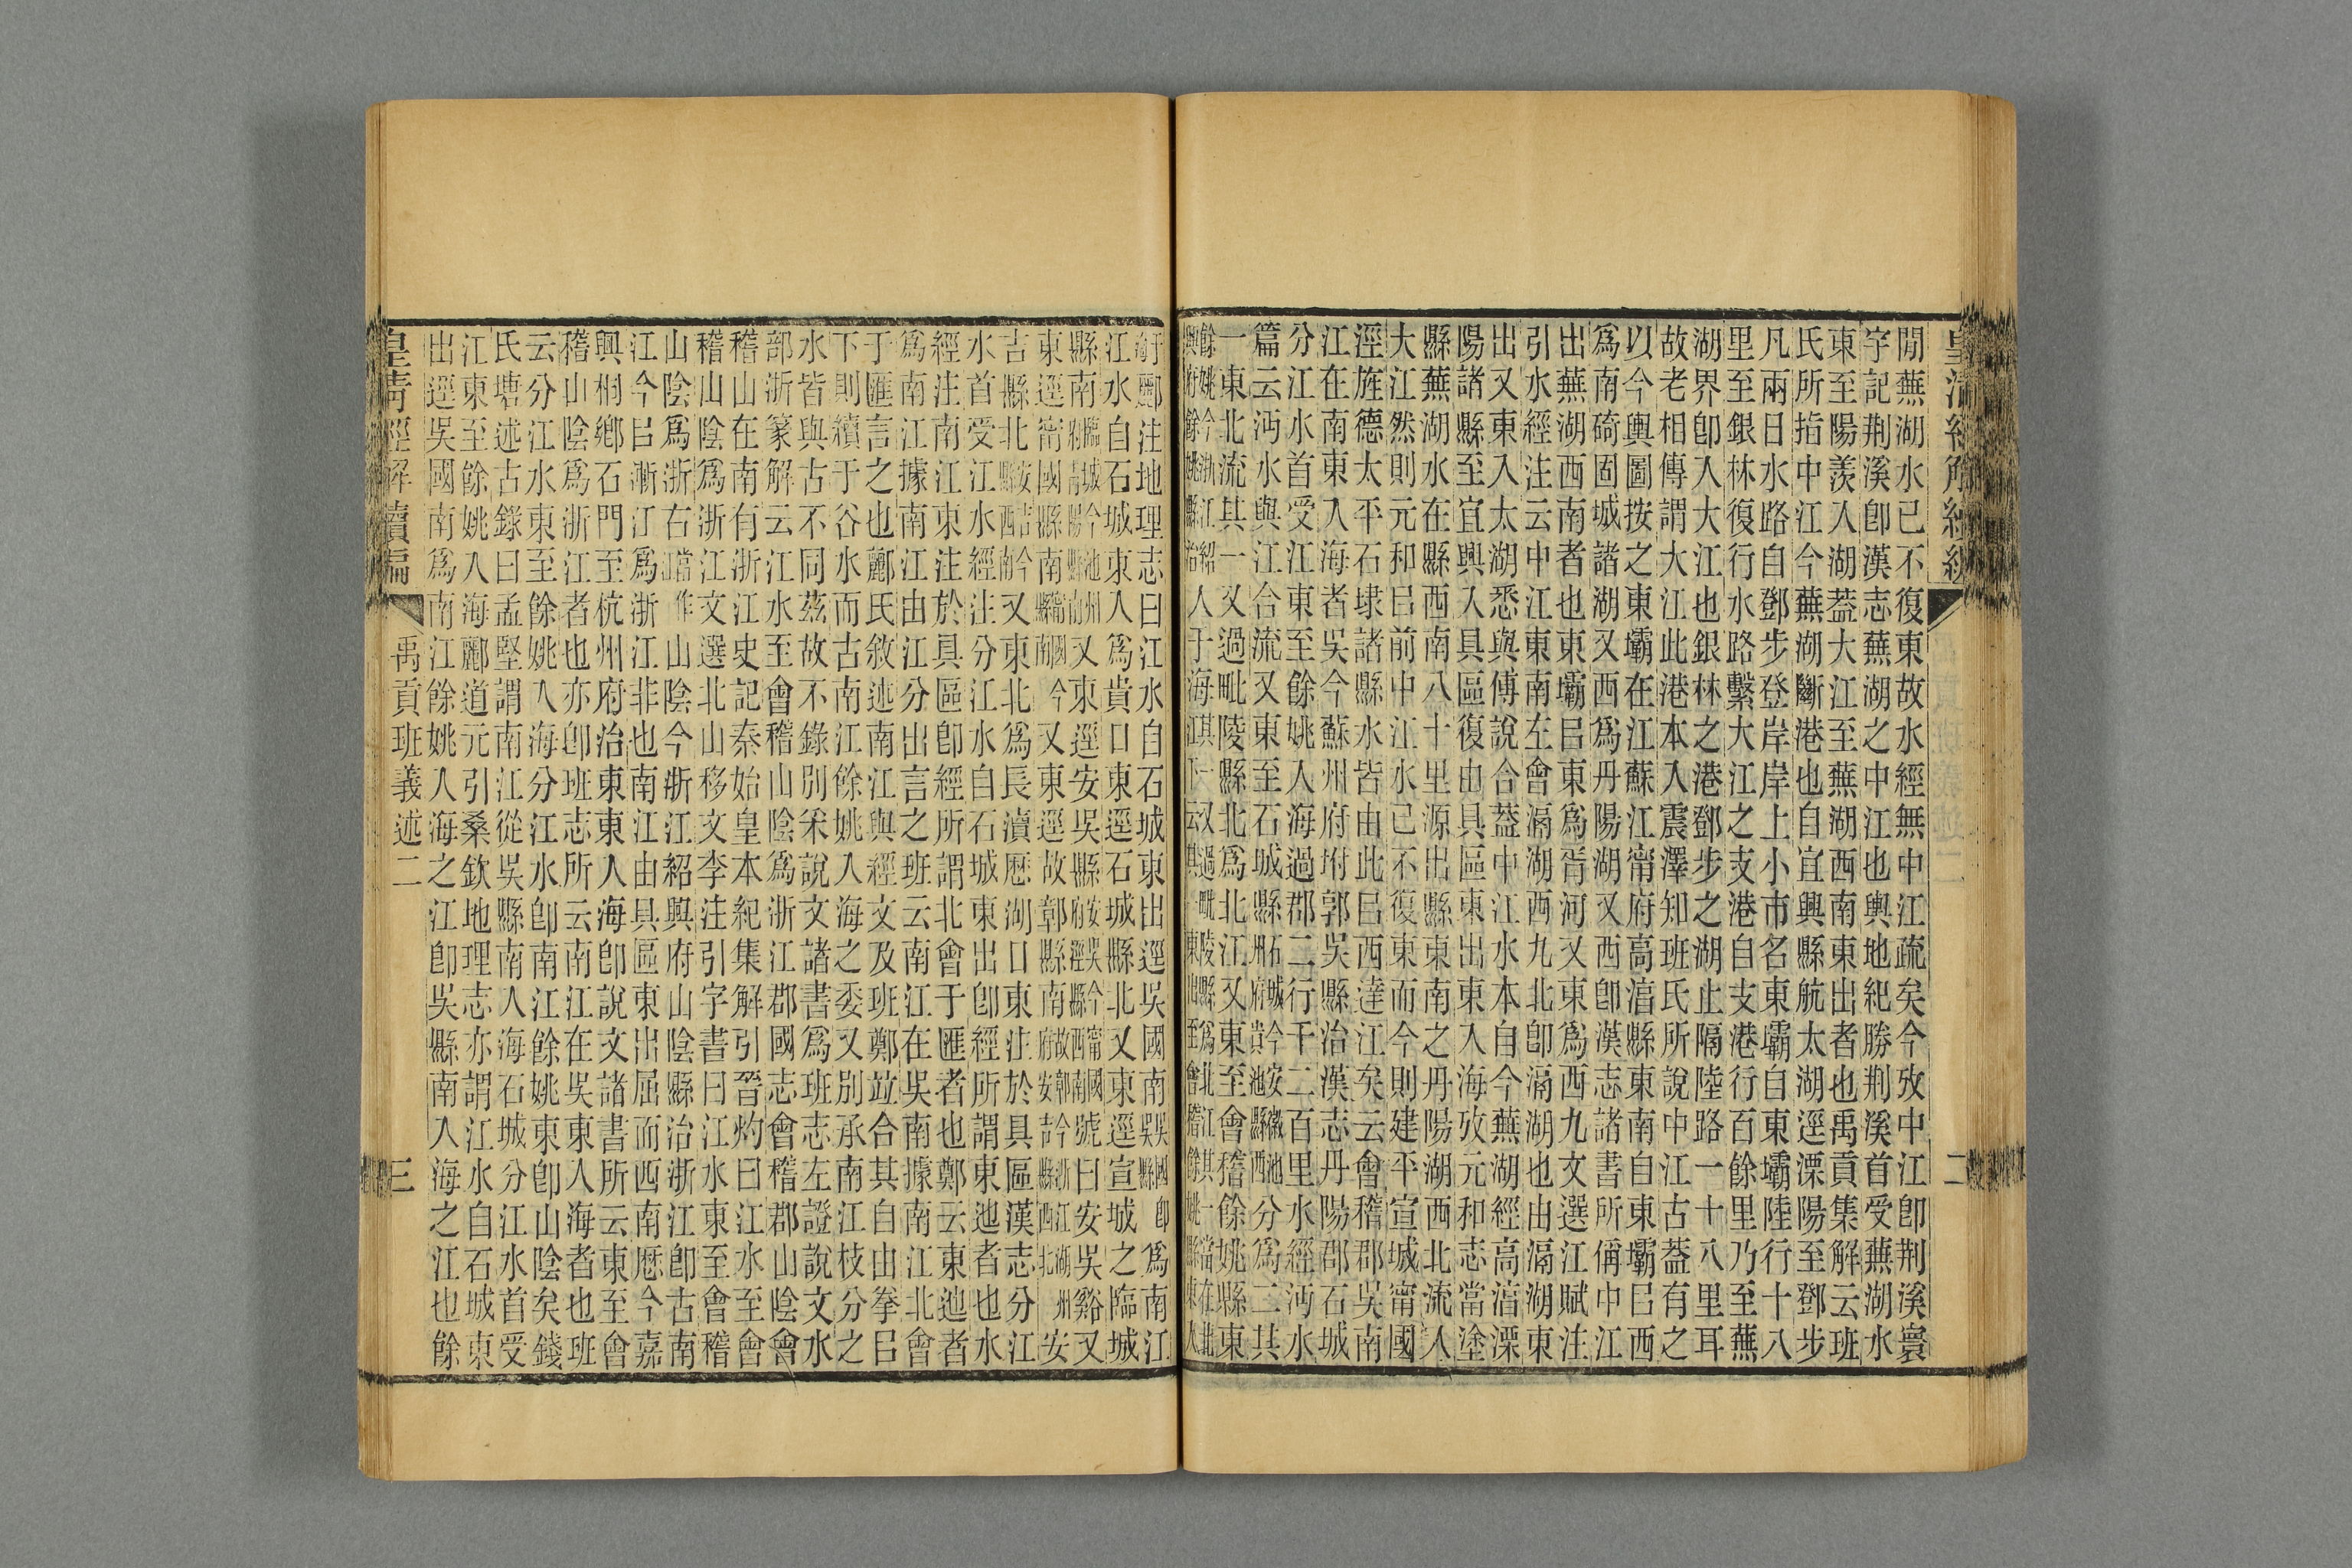 閒蕪湖水已不復東故水經無中江疏矣今攷中江卽荆溪寰
宇記荆溪卽漢志蕪湖之中江也輿地紀勝荆溪首受蕪湖水
東至陽羨入湖葢大江至蕪湖西南東出者也禹貢集解云班
氏所指中江今蕪湖斷港也自宜興縣航太湖逕溧陽至鄧步
凡兩日水路自鄧步登岸岸上小市名東壩自東壩陸行十八
里至銀林復行水路繫大江之支港自支港行百餘里乃至蕪
湖界卽入大江也銀林之港鄧步之湖止隔陸路一十八里耳
故老相傳謂大江此港本入震澤知班氏所說中江古葢有之
以今輿圖按之東壩在江蘇江甯府高湻縣東南自東壩㠯西
爲南碕固城諸湖又西爲丹陽湖又西卽漢志諸書所偁中江
出蕪湖西南者也東壩㠯東爲胥河又東爲西九文選江賦注
引水經注云中江東南左會滆湖西九北卽滆湖也由滆湖東
出又東入太湖悉與傅說合葢中江水本自今蕪湖經高湻溧
陽諸縣至宜興入具區復由具區東出東入海攷元和志當塗
縣蕪湖水在縣西南八十里源出縣東南之丹陽湖西北流入
大江然則元和㠯前中江水已不復東而今則建平宣城甯國
涇旌德太平石埭諸縣水皆由此㠯西達江矣云會稽郡吳南
江在南東入海者吳今蘇州府坿郭吳縣治漢志丹陽郡石城
分江水首受江東至餘姚入海過郡二行千二百里水經沔水
篇云沔水與江合流又東至石城縣石城今安徽池州府貴池縣西分爲二其
一東北流其一又過毗陵縣北爲北江又東至會稽餘姚縣東
餘姚今浙江紹興府餘姚縣治入于海
酈注地理志曰江水自石城東出逕吳國南吳國卽吳縣爲南江
江水自石城東入爲貴口東逕石城縣北又東逕宣城之臨城
縣南臨城今池州府靑陽縣南又東逕安吳縣安吳今甯國府涇縣西南號曰安吳谿又
東逕甯國縣南甯國今甯國縣南又東逕故鄣縣南故鄣今浙江湖州府安吉縣西北安
古縣北安吉今縣西南又東北爲長瀆歷湖口東注於具區漢志分江
水首受江水經注分江水自石城東出卽經所謂東迆者也水
經注南江東注於具區卽經所謂北會于匯者也鄭云東迆者
爲南江據南江由江分出言之班云南江在吳南據南江北會
于匯言之也酈氏敘述南江與經文及班鄭竝合其自由拳㠯
下則續于谷水而古南江餘姚入海之委又別承南江枝分之
水皆與古不同茲故不錄別采說文諸書爲班志左證說文水
部浙篆解云江水至會稽山陰爲浙江郡國志會稽郡山陰會
稽山在南有浙江史記秦始皇本紀集解引晉灼曰江水至會
稽山陰爲浙江文選北山移文李注引字書曰江水東至會稽
山陰爲浙右當作江山陰今浙江紹興府山陰縣治浙江卽古南
江今㠯漸江爲浙江非也南江由具區東出屈而西南歷今嘉
興桐鄉石門至杭州府治東東入海卽說文諸書所云東至會
稽山陰爲浙江者也亦卽班志所云南江在吳東入海者也班
云分江水東至餘姚入海分江水卽南江餘姚東卽山陰矣錢
氏塘述古錄曰孟堅謂南江從吳縣南入海石城分江水首受
江東至餘姚入海酈道元引桑欽地理志亦謂江水自石城東
出逕吳國南爲南江餘姚入海之江卽吳縣南入海之江也餘
禹貢班義述二
三